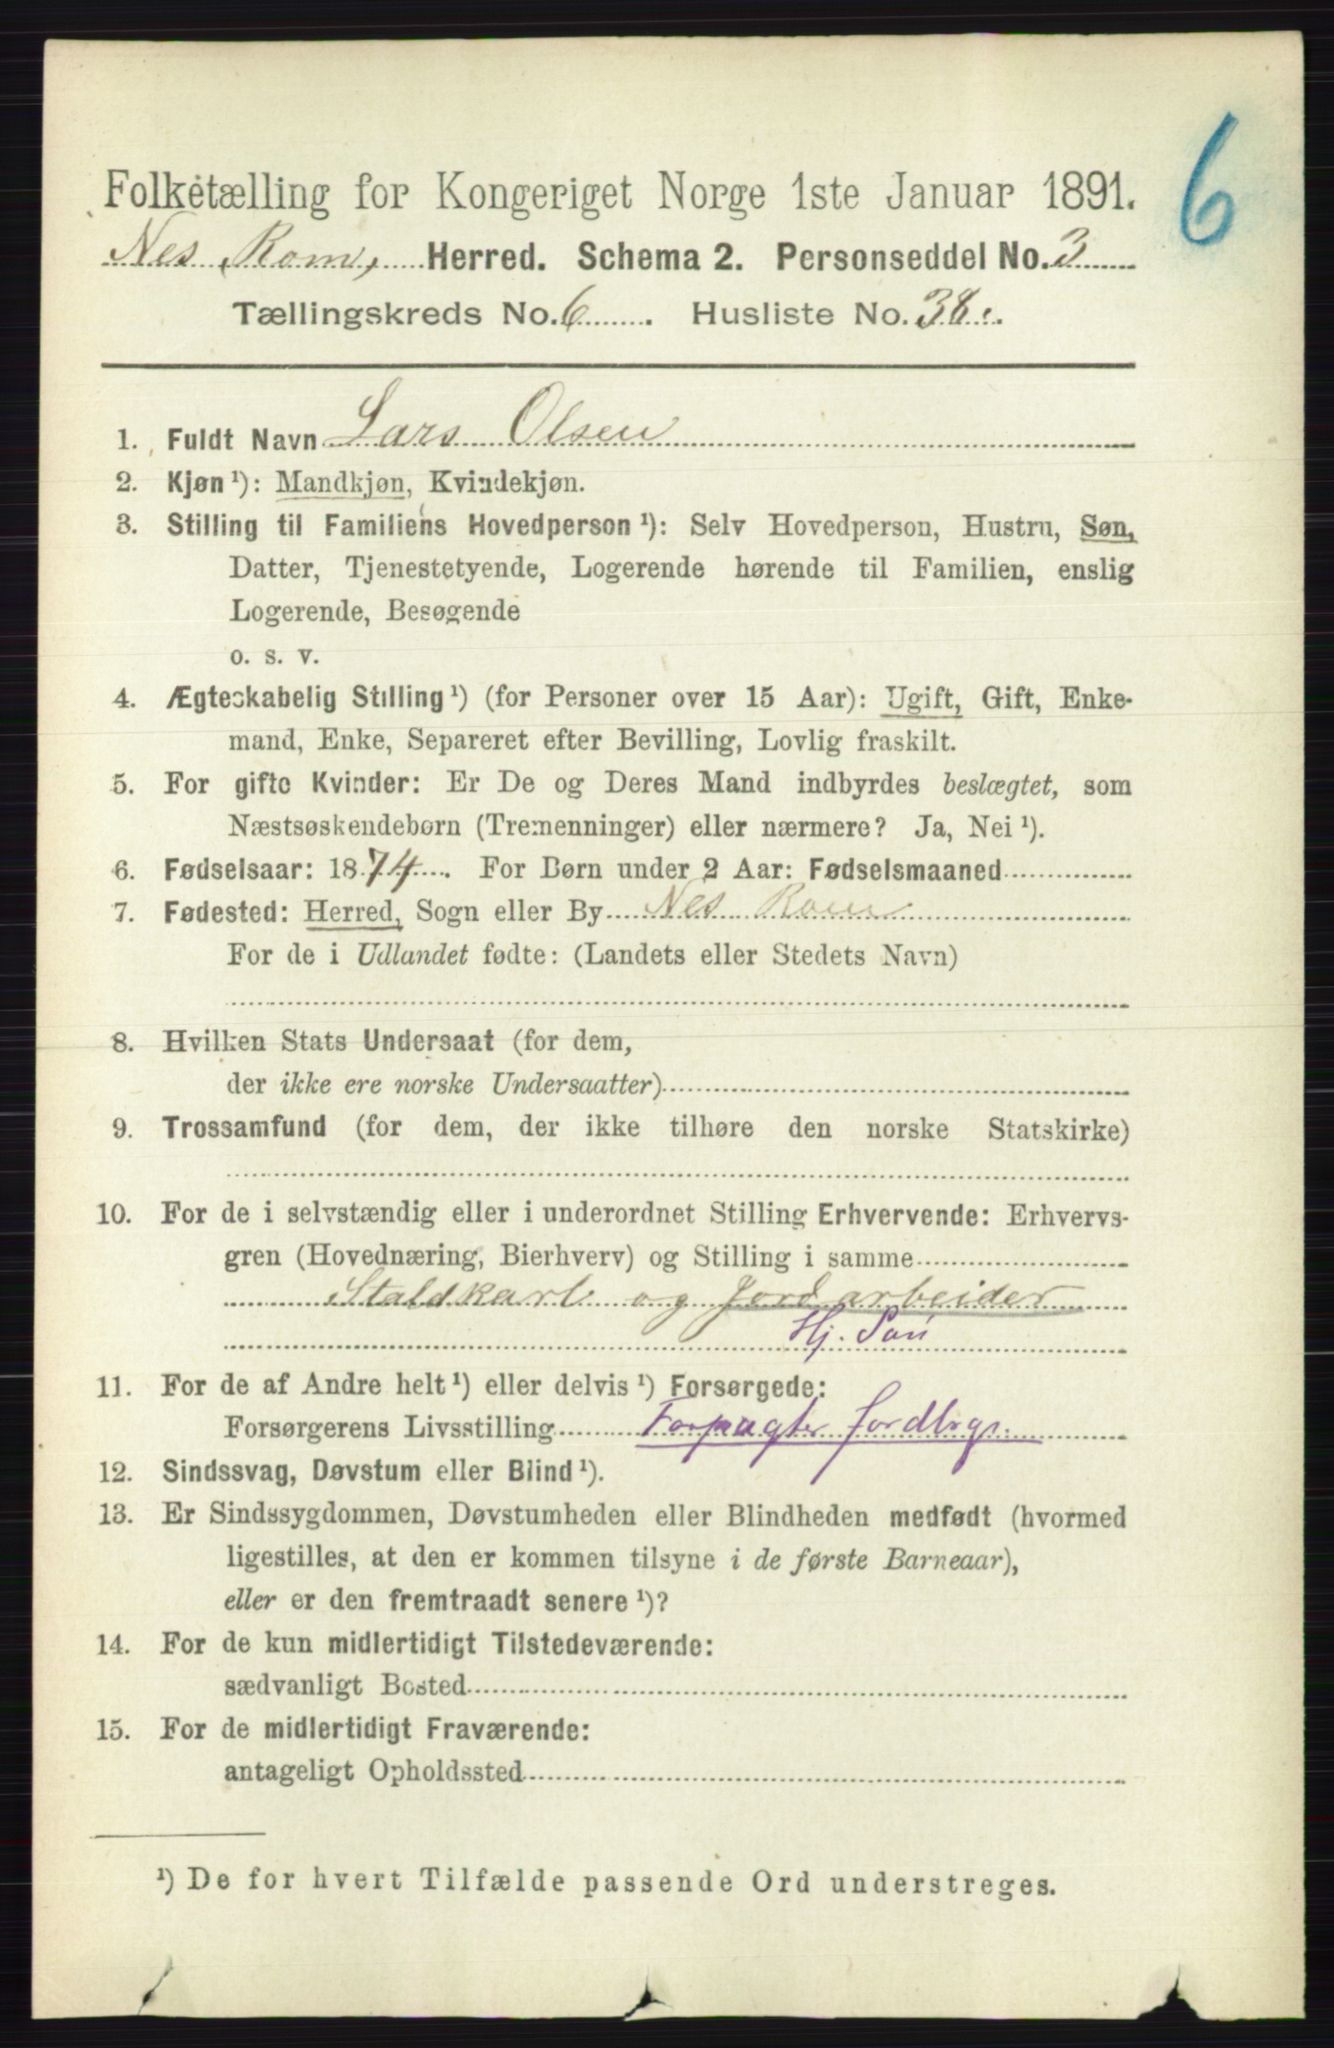 6
Folketælling for Kongeriget Norge 1ste Januar 1891.
Nes, Rom, Herred. Schema 2. Personseddel No. 3
Tællingskreds No. 6. Husliste No. 38.
1. Fuldt Navn Lars Olsen
2. Kjøn ¹): Mandkjøn, Kvindekjøn.
3. Stilling til Familiens Hovedperson ¹): Selv Hovedperson, Hustru, Søn,
Datter, Tjenestetyende, Logerende hørende til Familien, enslig
Logerende, Besøgende
o. s. v.
4. Ægteskabelig Stilling ¹) (for Personer over 15 Aar): Ugift, Gift, Enke-
mand, Enke, Separeret efter Bevilling, Lovlig fraskilt.
5. For gifte Kvinder: Er De og Deres Mand indbyrdes beslægtet, som
Næstsøskendebørn (Tremenninger) eller nærmere? Ja, Nei ¹).
6. Fødselsaar: 1874. For Børn under 2 Aar: Fødselsmaaned
7. Fødested: Herred, Sogn eller By Nes Rom
For de i Udlandet fødte: (Landets eller Stedets Navn)
8. Hvilken Stats Undersaat (for dem,
der ikke ere norske Undersaatter)
9. Trossamfund (for dem, der ikke tilhøre den norske Statskirke)
10. For de i selvstændig eller i underordnet Stilling Erhvervende: Erhvervs-
gren (Hovednæring, Bierhverv) og Stilling i samme
Staldkarl og Jordarbeider
Hj. Søn
11. For de af Andre helt ¹) eller delvis ¹) Forsørgede:
Forsørgerens Livsstilling Forpagter Jordbrg.
12. Sindssvag, Døvstum eller Blind ¹).
13. Er Sindssygdommen, Døvstumheden eller Blindheden medfødt (hvormed
ligestilles, at den er kommen tilsyne i de første Barneaar),
eller er den fremtraadt senere ¹)?
14. For de kun midlertidigt Tilstedeværende:
sædvanligt Bosted
15. For de midlertidigt Fraværende:
antageligt Opholdssted
¹) De for hvert Tilfælde passende Ord understreges.